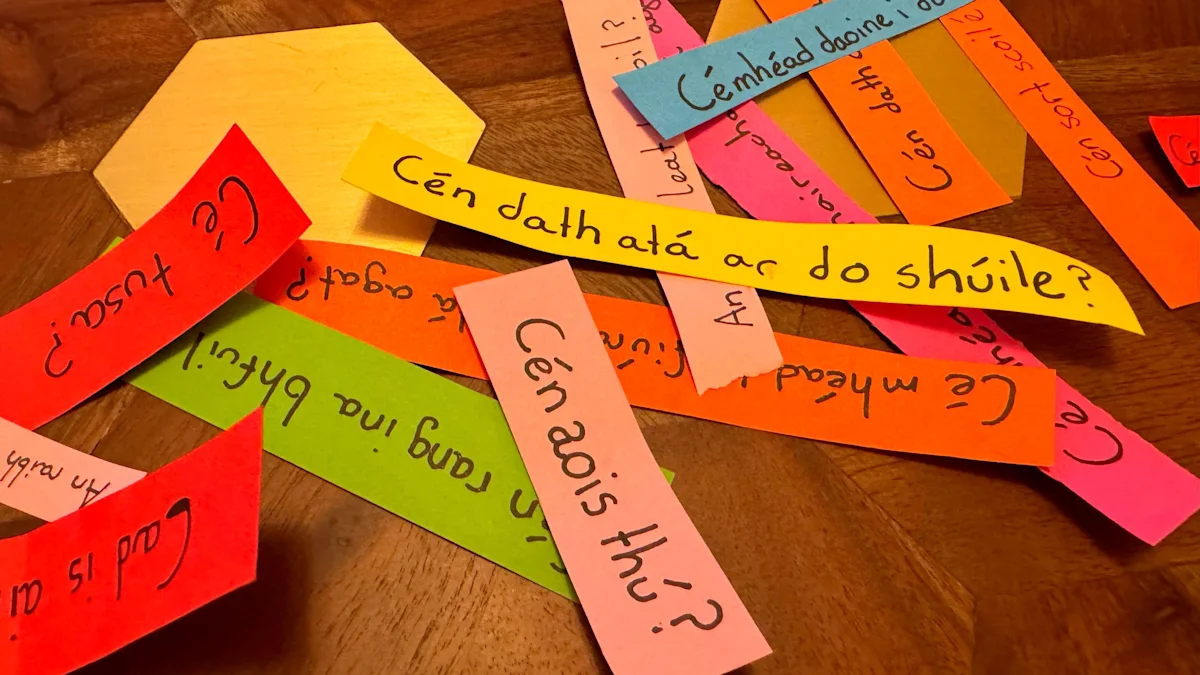 Cémhéad daoine i
Cén dath
Cén sort scoile
Cén dath atá ar do shúile?
Cé tusa?
agat?
Cé mhéad
An
Cén rang ina bhfuil
Cén aois thú?
An raibh
Cad is